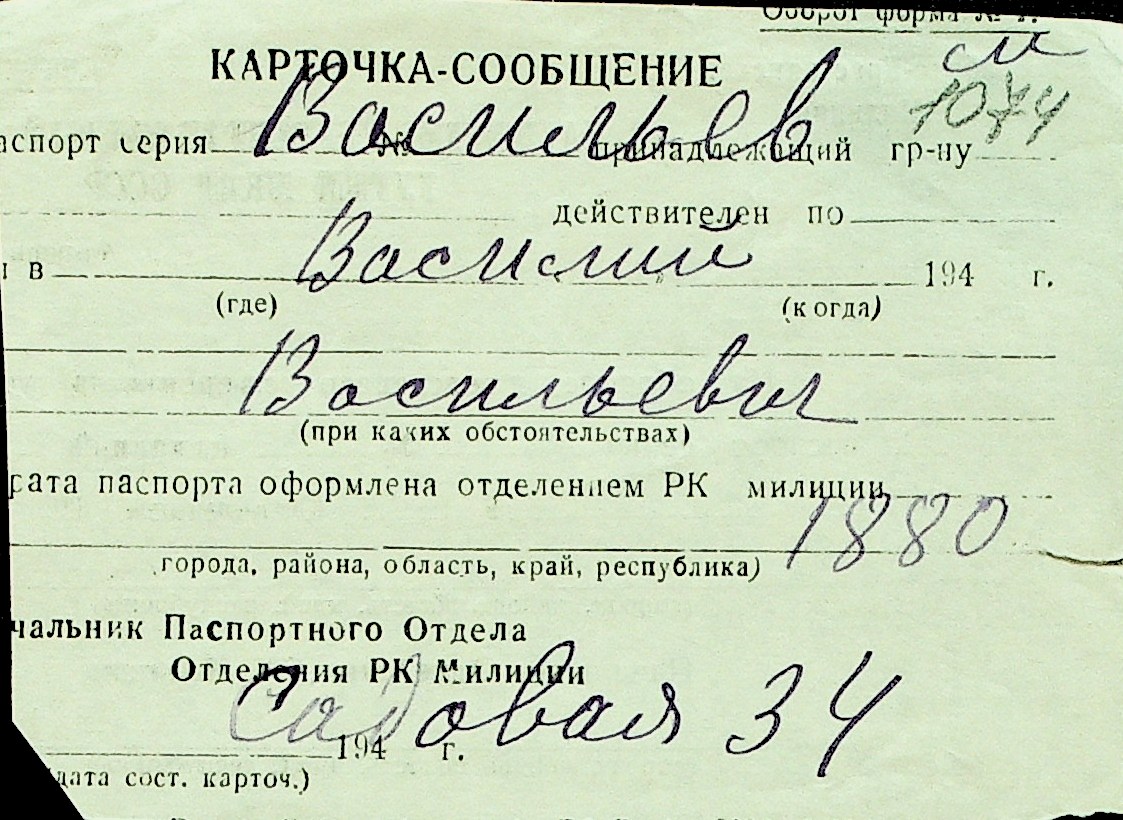 Оборот форма №
КАРТОЧКА-СООБЩЕНИЕ
м
1074
аспорт серия № принадлежащий гр-ну
Васильев
действителен по
Василий
в 194 г.
(где) (когда)
Васильевич
(при каких обстоятельствах)
рата паспорта оформлена отделением РК милиции
1880
города, района, область, край, республика)
чальник Паспортного Отдела
Отделения РК Милиции
Садовая 34
194 г.
дата сост. карточ.)